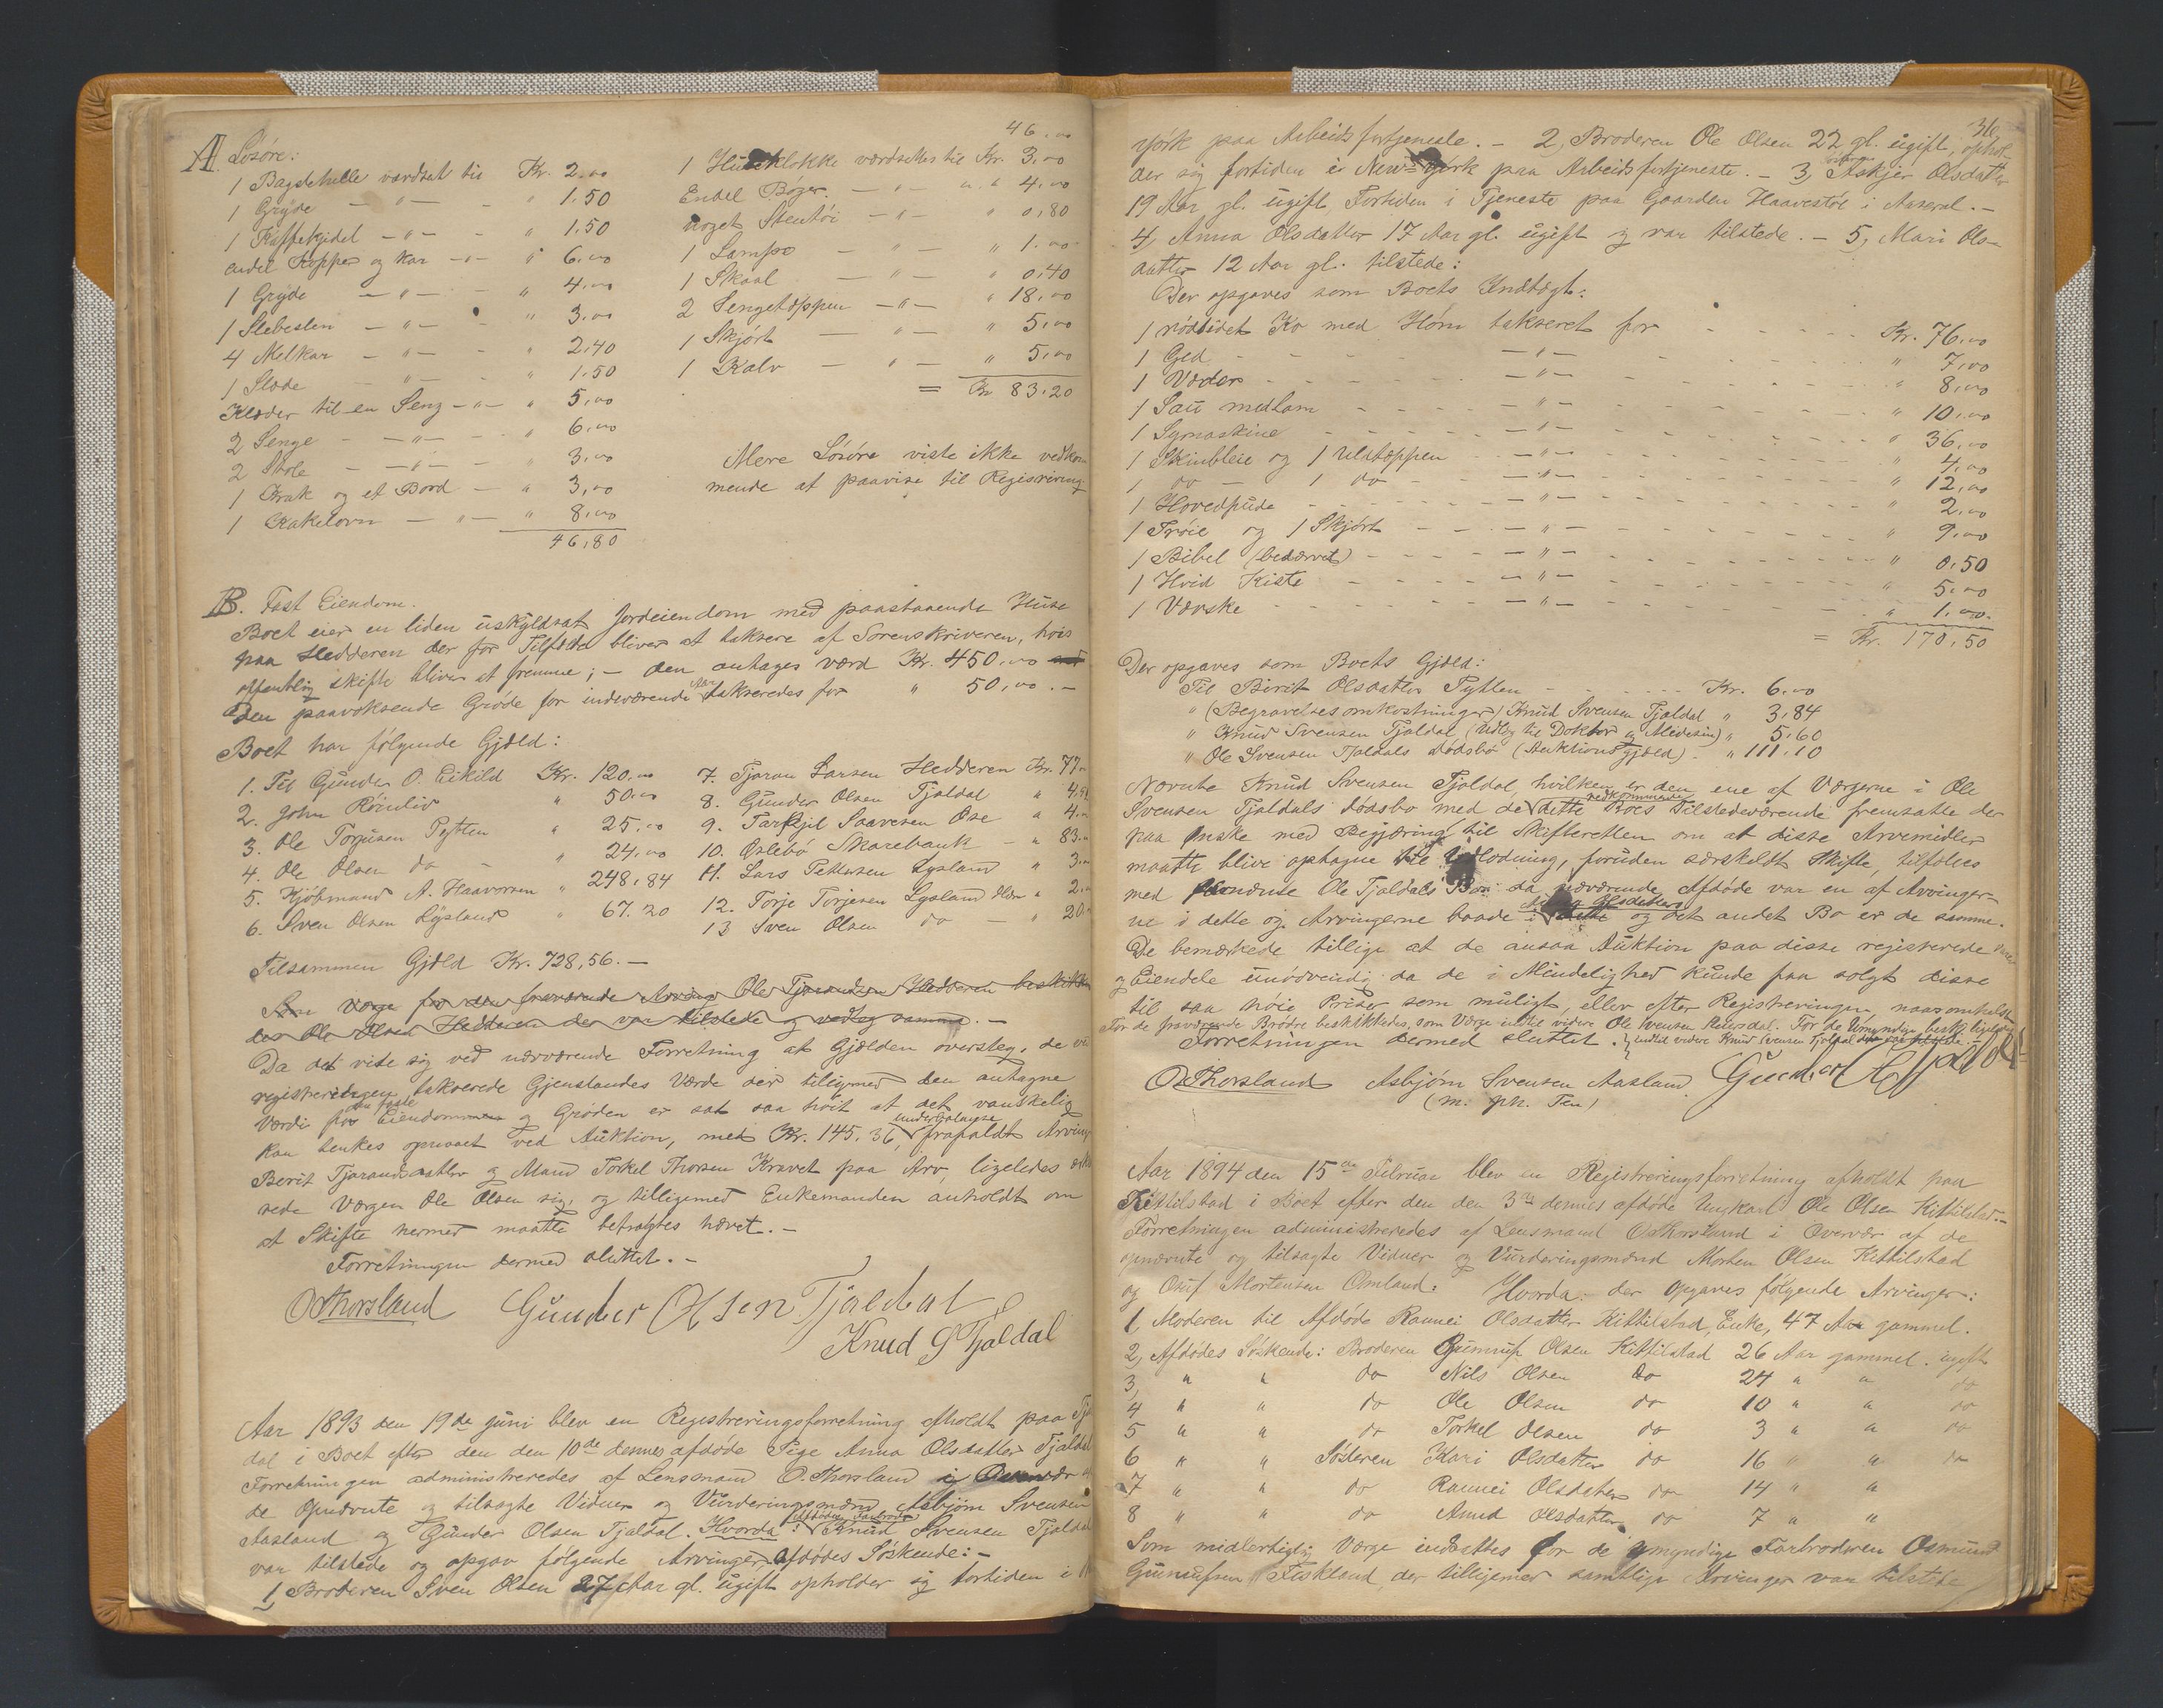 A. Løsøre:
1 Bagstehelle værdsat til Kr. 2.00
1 Gryde — " — - " 1.50
1 Kaffekjedel — " — - " 1.50
endel Kopper og Kar — " — " 6.00
1 Gryde — " — - " 4.00
1 Slebesten — " — - " 3.00
4 Melkar — " — - " 2.40
1 Slæde — " — - " 1.50
Klæder til en Seng — " — " 5.00
2 Senge - — " — - " 6.00
2 Stole - — " — - " 3.00
1 Krak og et Bord — " 3,00
1 Kakelovn — " — " 8.00
46,80
46.00
1 Husklokke værdsættes til Kr. 3.00
Endel Bøger — " — " " 4.00
noget Stentøi — " — " 0,80
1 Lampe — " — " 1.00
1 Skaal — " — " 0,40
2 Sengetæppen — " — " 18,00
1 Skjørt — " — " 5,00
1 Kalv — " — " 5,00
= Kr 83.20
Mere Løsøre viste ikke vedkom
mende at paavise til Registrering.
B. Fast Eiendom.
Boet eier en liden uskyldsat Jordeiendom med paastaaende Huse
paa Hedderen der for Tilfælde bliver at taksere af Sorenskriveren, hvis
offentlig skifte bliver at fremme; — den antages værd Kr. 450,00
Den paavoksende Grøde for indeværende Aar takseredes for " 50,00. —
Boet har følgende Gjæld:
1. Til Gunder O. Eikild Kr. 120.00
2. John Røinlid " 50.00
3. Ole Torjusen Pytten " 25.00
4. Ole Olsen do - " 24,00
5. Kjøbmand A. Haavorsen " 248,84
6. Sven Olsen Lysland " 67.20
7. Tjøran Larsen Hedderen Kr. 77
8. Gunder Olsen Tjaldal "
9. Tarkjil Saavesen Ose " 4.
10. Øslebø Skarebank - " 83.
11. Lars Pettersen Lysland " 3.
12. Torje Torjesen Lysland " 2.
13 Sven Olsen do — " 20
Tilsammen Gjæld Kr. 728,56. —
Som Værge for den fraværende Arving Ole Tjørandsen Hedderen beskikke
des Ole Olsen Hedderen der var tilstede og vedtog samme. —
Da det viste sig ved nærværende Forretning at Gjælden oversteg, de
registreringen takserede Gjenstandes Værde der tilligemed den antagne
Værdi for den faste Eiendom og Grøden er sat saa høit at det vanskelig
kan tænkes opnaaet ved Auktion, med Kr. 145.36, undertegnede frafaldt Arving
Berit Tjørandsdatter og Mand Torkel Thorsen Kravet paa Arv, ligeledes
rede Værgen Ole Olsen sig, og tilligemed Enkemanden anholdt om
at Skifte hermed maatte betragtes hævet. —
Forretningen dermed sluttet. —
O Thorsland Gunder Olsen Tjaldal
Knud S Tjaldal
Aar 1893 den 19de juni blev en Registreringsforretning afholdt paa Tjal
dal i Boet efter den den 10de dennes afdøde Pige Anna Olsdatter Tjaldal
Forretningen administreredes af Lensmand O. Thorsland i Overvær af
de Opnævnte og tilsagte Vidner og Vurderingsmænd Asbjørn Svensen
Aasland og Gunder Olsen Tjaldal. Hvorda: Afdødes Farbroder Knud Svensen Tjaldal
var tilstede og opgav følgende Arvinger afdødes Søskende: —
1, Broderen Sven Olsen 27 Aar gl. ugift opholder sig fortiden i
36
york paa Arbeidsfortjeneste. — 2, Broderen Ole Olsen 22 gl. ugift, ophol-
der sig fortiden i New-york paa Arbeidsfortjeneste. — 3, Søsteren Askjer Olsdatter
19 Aar gl. ugift Fortiden i Tjeneste paa Gaarden Haavestøl i Aaseral. —
4, Anna Olsdatter 17 Aar gl. ugift og var tilstede. — 5, Mari Ols-
datter 12 Aar gl. tilstede:
Der opgaves som Boets Indtægt:
1 rødsidet Ko med Horn takseret for - - - Kr. 76,00
1 Ged - - — " — - - " 7,00
1 Væder - - — " — - - " 8,00
1 Sau med lam - - — " — - - " 10,00
1 Symaskine - - — " — - - " 36,00
1 Skinfleie og 1 Uldtæppen - — " — - - " 4,00
1 do — 1 do - - — " — - - " 12,00
1 Hovedpude - - — " — - - " 2,00
1 Trøie og 1 Skjørt - - — " — - - " 9,00
1 Bibel (bedærvet) - - — " — - - " 0,50
1 Hvid Kiste - - — " — - - " 5,00
1 Væske - - — " — - - " 1.00.
= Kr. 170,50
Der opgaves som Boets Gjæld:
Til Berit Olsdatter Pytten - - - Kr. 6.00
" (Begravelsesomkostninger) Knud Svensen Tjaldal " 3,84
" Knud Svensen Tjaldal (Udlæg til Doktor og Medesin) " 5,60
" Ole Svensen Tjaldals dødsbo (Auktionsgjæld). " 111.10
Nævnte Knud Svensen Tjaldal, hvilken er den ene af Værgerne i Ole
Svensen Tjaldals dødsbo med de dette vedkommende Boes Tilstedeværende fremsatte der
paa Ønske med Begjæring til Skifteretten om at disse Arvemidler
maatte blive optagne til Udlodning, foruden særskildt Skifte, tilfølles
med nævnte Ole Tjaldals Bo da nærværende Afdøde var en af Arvinger-
ne i dette og Arvingerne baade i Anna Olsdatters og det andet Bo er de samme.
De bemærkede tillige at de ansaa Auktion paa disse registrerede
og Eiendele unødvendig da de i Mindelighed kunde faa solgt disse
til saa høie Priser som muligt, eller efter Registreringen, naarsomhelst
For de fraværende Brødre beskikkedes, som Værge indtil videre Ole Svensen. For de Umyndige besk. ligeledes
Forretningen dermed sluttet. indtil videre Knud Svensen Tjaldal der var tilstede. —
O Thorsland Asbjørn Svensen Aasland Gunder O Tjaldal
(m. ph. Pen)
Aar 1894 den 15de Februar blev en Registreringsforretning afholdt paa
Kittilstad i Boet efter den den 3de dennes afdøde Ungkarl Ole Olsen Kittilstad. —
Forretningen administreredes af Lensmand O. Thorsland i Overvær af de
opnævnte og tilsagte Vidner og Vurderingsmænd Morten Olsen Kittilstad
og Osuf Mortensen Omland. Hvorda: der Opgaves følgende Arvinger:
1, Moderen til Afdøde Raunei Olsdatter Kittilstad, Enke, 47 Aar gammel.
2, Afdødes Søskende: Broderen Gumuf Olsen Kittilstad 26 Aar gammel. ugift
3, " " do Nils Olsen do 24 " " do
4 " " do Ole Olsen do 10 " " do
5 " " do Torkel Olsen do 3 " " do
6 " " Søsteren Kari Olsdatter do 16 " " do
7 " " do Raunei Olsdatter do 14 " "
8 " " do Anna Olsdatter do 7 " "
Som midlertidig Værge indsattes for de Umyndige Farbroderen Osmund
Gumufsen Fiskland, der tilligemed samtlige Arvinger var tilstede